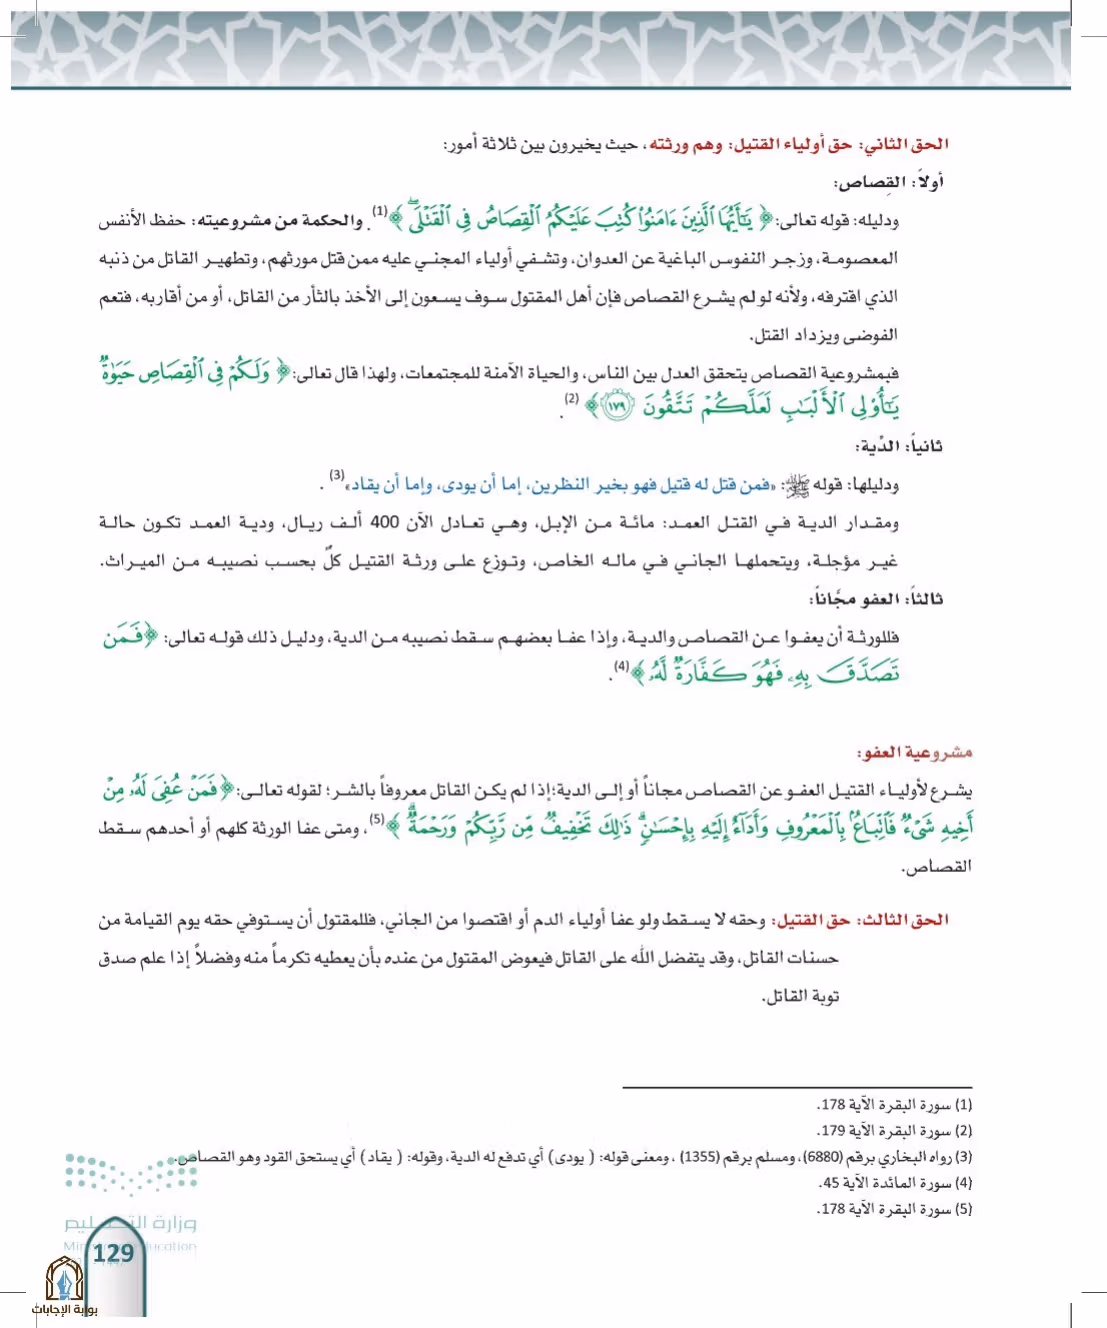 الحق الثاني: حق أولياء القتيل: وهم ورثته، حيث يخيرون بين ثلاثة أمور:
أولاً: القِصاص:
ودليله: قوله تعالى: ﴿ يَٰٓأَيُّهَا ٱلَّذِينَ ءَامَنُواْ كُتِبَ عَلَيْكُمُ ٱلْقِصَاصُ فِى ٱلْقَتْلَىۖ ﴾(1). والحكمة من مشروعيته: حفظ الأنفس
المعصومة، وزجر النفوس الباغية عن العدوان، وتشفي أولياء المجني عليه ممن قتل مورثهم، وتطهير القاتل من ذنبه
الذي اقترفه، ولأنه لو لم يشرع القصاص فإن أهل المقتول سوف يسعون إلى الأخذ بالثأر من القاتل، أو من أقاربه، فتعم
الفوضى ويزداد القتل.
فبمشروعية القصاص يتحقق العدل بين الناس، والحياة الآمنة للمجتمعات، ولهذا قال تعالى: ﴿ وَلَكُمْ فِى ٱلْقِصَاصِ حَيَوٰةٌ
يَٰٓأُوْلِى ٱلْأَلْبَٰبِ لَعَلَّكُمْ تَتَّقُونَ ١٧٩ ﴾(2).
ثانياً: الدِّية:
ودليلها: قوله ﷺ: «فمن قتل له قتيل فهو بخير النظرين، إما أن يودى، وإما أن يقاد»(3).
ومقدار الدية في القتل العمد: مائة من الإبل، وهي تعادل الآن 400 ألف ريال، ودية العمد تكون حالة
غير مؤجلة، ويتحملها الجاني في ماله الخاص، وتوزع على ورثة القتيل كلٌ بحسب نصيبه من الميراث.
ثالثاً: العفو مجَّاناً:
فللورثة أن يعفوا عن القصاص والدية، وإذا عفا بعضهم سقط نصيبه من الدية، ودليل ذلك قوله تعالى: ﴿فَمَن
تَصَدَّقَ بِهِۦ فَهُوَ كَفَّارَةٌ لَّهُۥ ﴾(4).
مشروعية العفو:
يشرع لأولياء القتيل العفو عن القصاص مجاناً أو إلى الدية؛ إذا لم يكن القاتل معروفاً بالشر؛ لقوله تعالى: ﴿ فَمَنْ عُفِىَ لَهُۥ مِنْ
أَخِيهِ شَىْءٌ فَٱتِّبَاعٌۢ بِٱلْمَعْرُوفِ وَأَدَآءٌ إِلَيْهِ بِإِحْسَٰنٍۗ ذَٰلِكَ تَخْفِيفٌ مِّن رَّبِّكُمْ وَرَحْمَةٌۗ ﴾(5)، ومتى عفا الورثة كلهم أو أحدهم سقط
القصاص.
الحق الثالث: حق القتيل: وحقه لا يسقط ولو عفا أولياء الدم أو اقتصوا من الجاني، فللمقتول أن يستوفي حقه يوم القيامة من
حسنات القاتل، وقد يتفضل الله على القاتل فيعوض المقتول من عنده بأن يعطيه تكرماً منه وفضلاً إذا علم صدق
توبة القاتل.
(1) سورة البقرة الآية 178.
(2) سورة البقرة الآية 179.
(3) رواه البخاري برقم (6880)، ومسلم برقم (1355) ، ومعنى قوله: ( يودى) أي تدفع له الدية، وقوله: ( يقاد) أي يستحق القود وهو القصاص.
(4) سورة المائدة الآية 45.
(5) سورة البقرة الآية 178.
وزارة التعليم
129
بوابة الإجابات